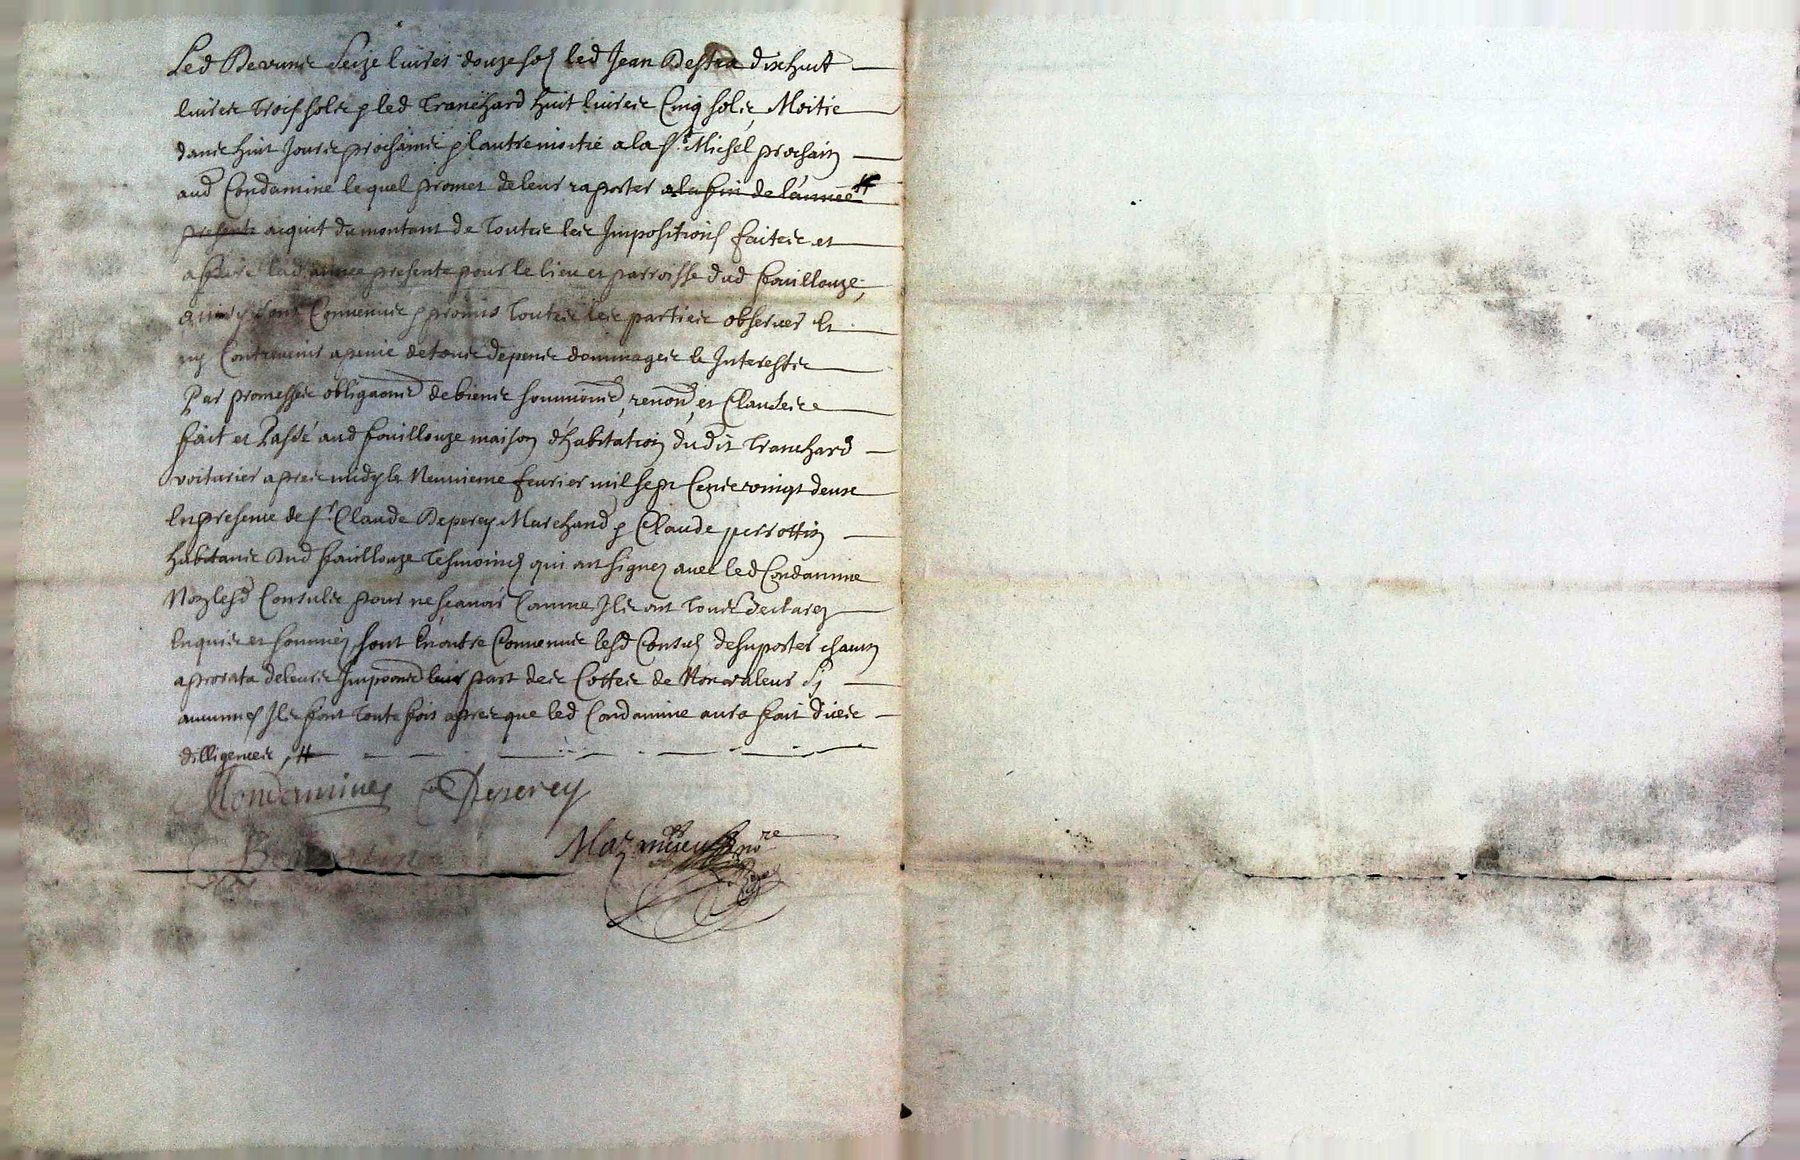 Led Devunie Seize livres douze sols led Jean Destra dixhuit
livres Trois sols & led Tranchard huit livres Cinq sols, Moitie
dans huit Jours prochains & lautre moitié a la St. Michel prochain
aud Condamine lequel promet de leur raporter a la fin de lannee
presente acquit du montant de Toutes les Impositions faites et
a faire lad annee presente pour le lieu et parroisse dud fouillouze,
ainsy sont Convenus & promis Toutes les parties observer et
ny Contrevenir a peine de tous depens dommages et Interests
Par promesses obligaons de biens soumons, renons, et Clauses
fait et Passé aud fouillouze maison d'habitation dudit Tranchard
voiturier apres midy le Neuvieme fevrier mil sept Cens vingt deux
En presence de sr Claude Deperey Marchand & Claude perrottin
habitans dud fouillouze Tesmoins qui ont signez avec led Condamine
Non lesd Consuls pour ne scavoir Comme Ils ont Tous declarez
Enquis et sommez sont En outre Convenus lesd Consuls de suporter chacun
a prorata de leurs Impoons leur part des Cottes de Non valeur sy
aucunes Ils sont Toutefois apres que led Condamine aura fait dües
dilligences,
Condamines Deperey
Maz nore